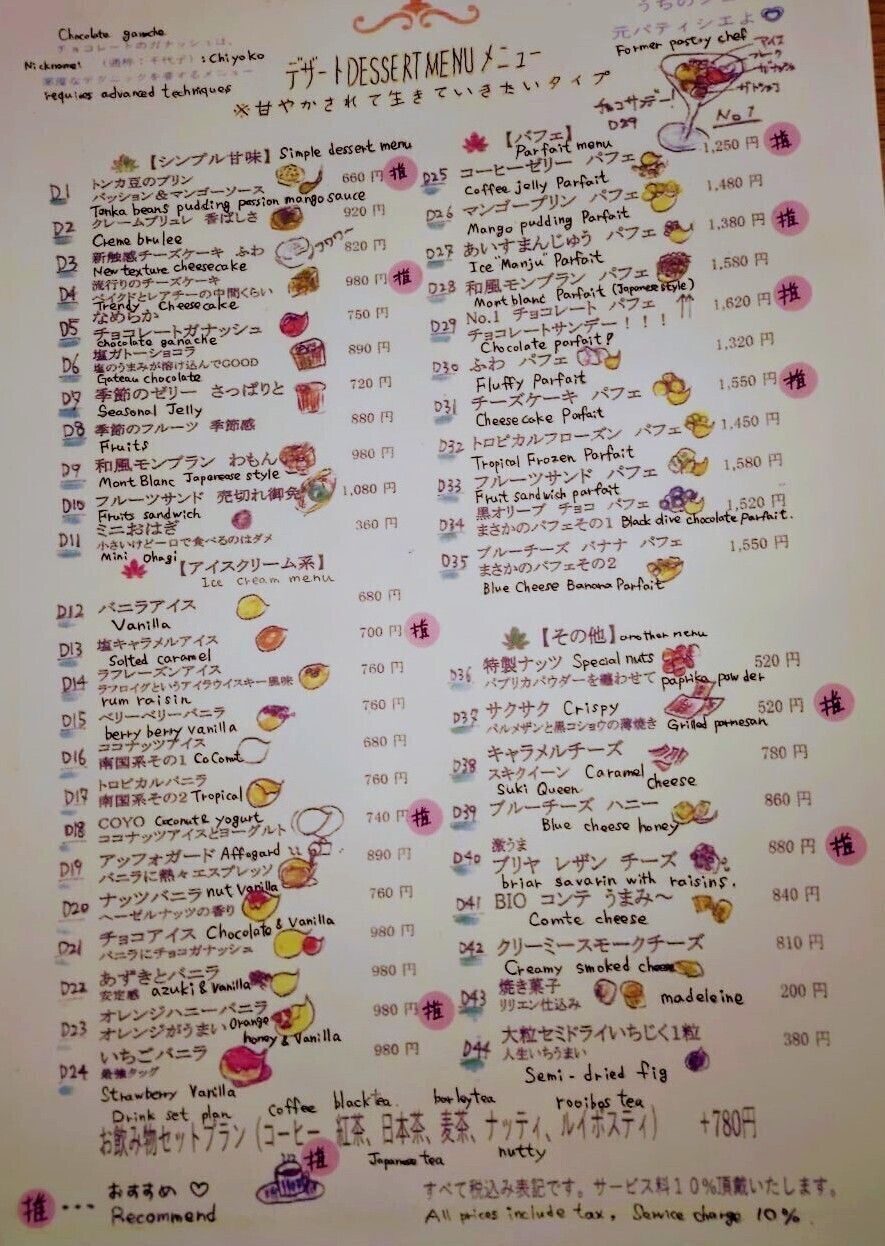 Chocolate ganache
チョコレートのガナッシュは、
Nickname: (通称：千代子) : Chiyoko
高度なテクニックを要するメニュー
requires advanced techniques
デザートDESSERT MENU メニュー
※甘やかされて生きていきたいタイプ
元パティシエよ
Former pastry chef
アイス
チョコサンデー!
D29
No1
【シンプル甘味】 Simple dessert menu
D1 トンカ豆のプリン 660円 推
パッション＆マンゴーソース
Tonka beans pudding passion mango sauce
D2 クレームブリュレ 香ばしさ 920円
Creme brulee
D3 新触感チーズケーキ ふわ フワフワ〜 820円
New texture cheesecake
D4 流行りのチーズケーキ 980円 推
ベイクドとレアチーの中間くらい
Trendy Cheesecake
D5 なめらか 750円
チョコレートガナッシュ
chocolate ganache
D6 塩ガトーショコラ 890円
塩のうまみが溶け込んでGOOD
Gateau chocolate
D7 季節のゼリー さっぱりと 720円
Seasonal Jelly
D8 季節のフルーツ 季節感 880円
Fruits
D9 和風モンブラン わもん 980円
Mont Blanc Japanease style
D10 フルーツサンド 売切れ御免 1,080円
Fruits sandwich
D11 ミニおはぎ 360円
小さいけど一口で食べるのはダメ
Mini Ohagi
【アイスクリーム系】
Ice cream menu
D12 バニラアイス 680円
Vanilla
D13 塩キャラメルアイス 700円 推
Solted caramel
D14 ラフレーズンアイス 760円
ラフロイグというアイラウイスキー風味
rum raisin
D15 ベリーベリーバニラ 760円
berry berry vanilla
D16 ココナッツアイス 680円
南国系その1 CoConut
D17 トロピカルバニラ 760円
南国系その2 Tropical
D18 COYO Coconut& yogurt 740円 推
ココナッツアイスとヨーグルト
D19 アッフォガード Affogard 890円
バニラに熱々エスプレッソ
D20 ナッツバニラ nut Vanilla 760円
ヘーゼルナッツの香り
D21 チョコアイス Chocolate & Vanilla 980円
バニラにチョコガナッシュ
D22 あずきとバニラ 980円
安定感 azuki & Vanilla
D23 オレンジハニーバニラ 980円 推
オレンジがうまい Orange
honey & Vanilla
D24 いちごバニラ 980円
最強タッグ
Strawberry Vanilla
【パフェ】
Parfait menu
D25 コーヒーゼリー パフェ 1,250円 推
Coffee jelly Parfait
D26 マンゴープリン パフェ 1,480円
Mango pudding Parfait
D27 あいすまんじゅう パフェ 1,380円 推
Ice "Manju" Parfait
D28 和風モンブラン パフェ 1,580円
Mont blanc Parfait (Japanese style)
D29 No.1 チョコレート パフェ 1,620円 推
チョコレートサンデー！！！
Chocolate parfait!
D30 ふわ パフェ 1,320円
Fluffy Parfait
D31 チーズケーキ パフェ 1,550円 推
Cheesecake Parfait
D32 トロピカルフローズン パフェ 1,450円
Tropical Frozen Parfait
D33 フルーツサンド パフェ 1,580円
Fruit sandwich parfait
D34 黒オリーブ チョコ パフェ 1,520円
まさかのパフェその1 Black olive chocolate Parfait.
D35 ブルーチーズ バナナ パフェ 1,550円
まさかのパフェその2
Blue Cheese Banana Parfait
【その他】 another menu
D36 特製ナッツ Special nuts 520円
パプリカパウダーを纏わせて paprika powder
D37 サクサク Crispy 520円 推
パルメザンと黒コショウの薄焼き Grilled parmesan
D38 キャラメルチーズ 780円
スキクイーン Caramel cheese
Suki Queen
D39 ブルーチーズ ハニー 860円
Blue cheese honey
D40 激うま 880円 推
ブリヤ レザン チーズ
briar savarin with raisins.
D41 BIO コンテ うまみ〜 840円
Comte cheese
D42 クリーミースモークチーズ 810円
Creamy smoked cheese
D43 焼き菓子 200円
リリエン仕込み madeleine
D44 大粒セミドライいちじく1粒 380円
人生いちうまい
Semi-dried fig
Drink set plan coffee black tea. borley tea rooibos tea
お飲み物セットプラン（コーヒー 紅茶、日本茶、麦茶、ナッティ、ルイボスティ） +780円
推 Japanese tea nutty
推 ... おすすめ♡
Recommend
すべて税込み表記です。サービス料10％頂戴いたします。
All prices include tax, Service charge 10%.